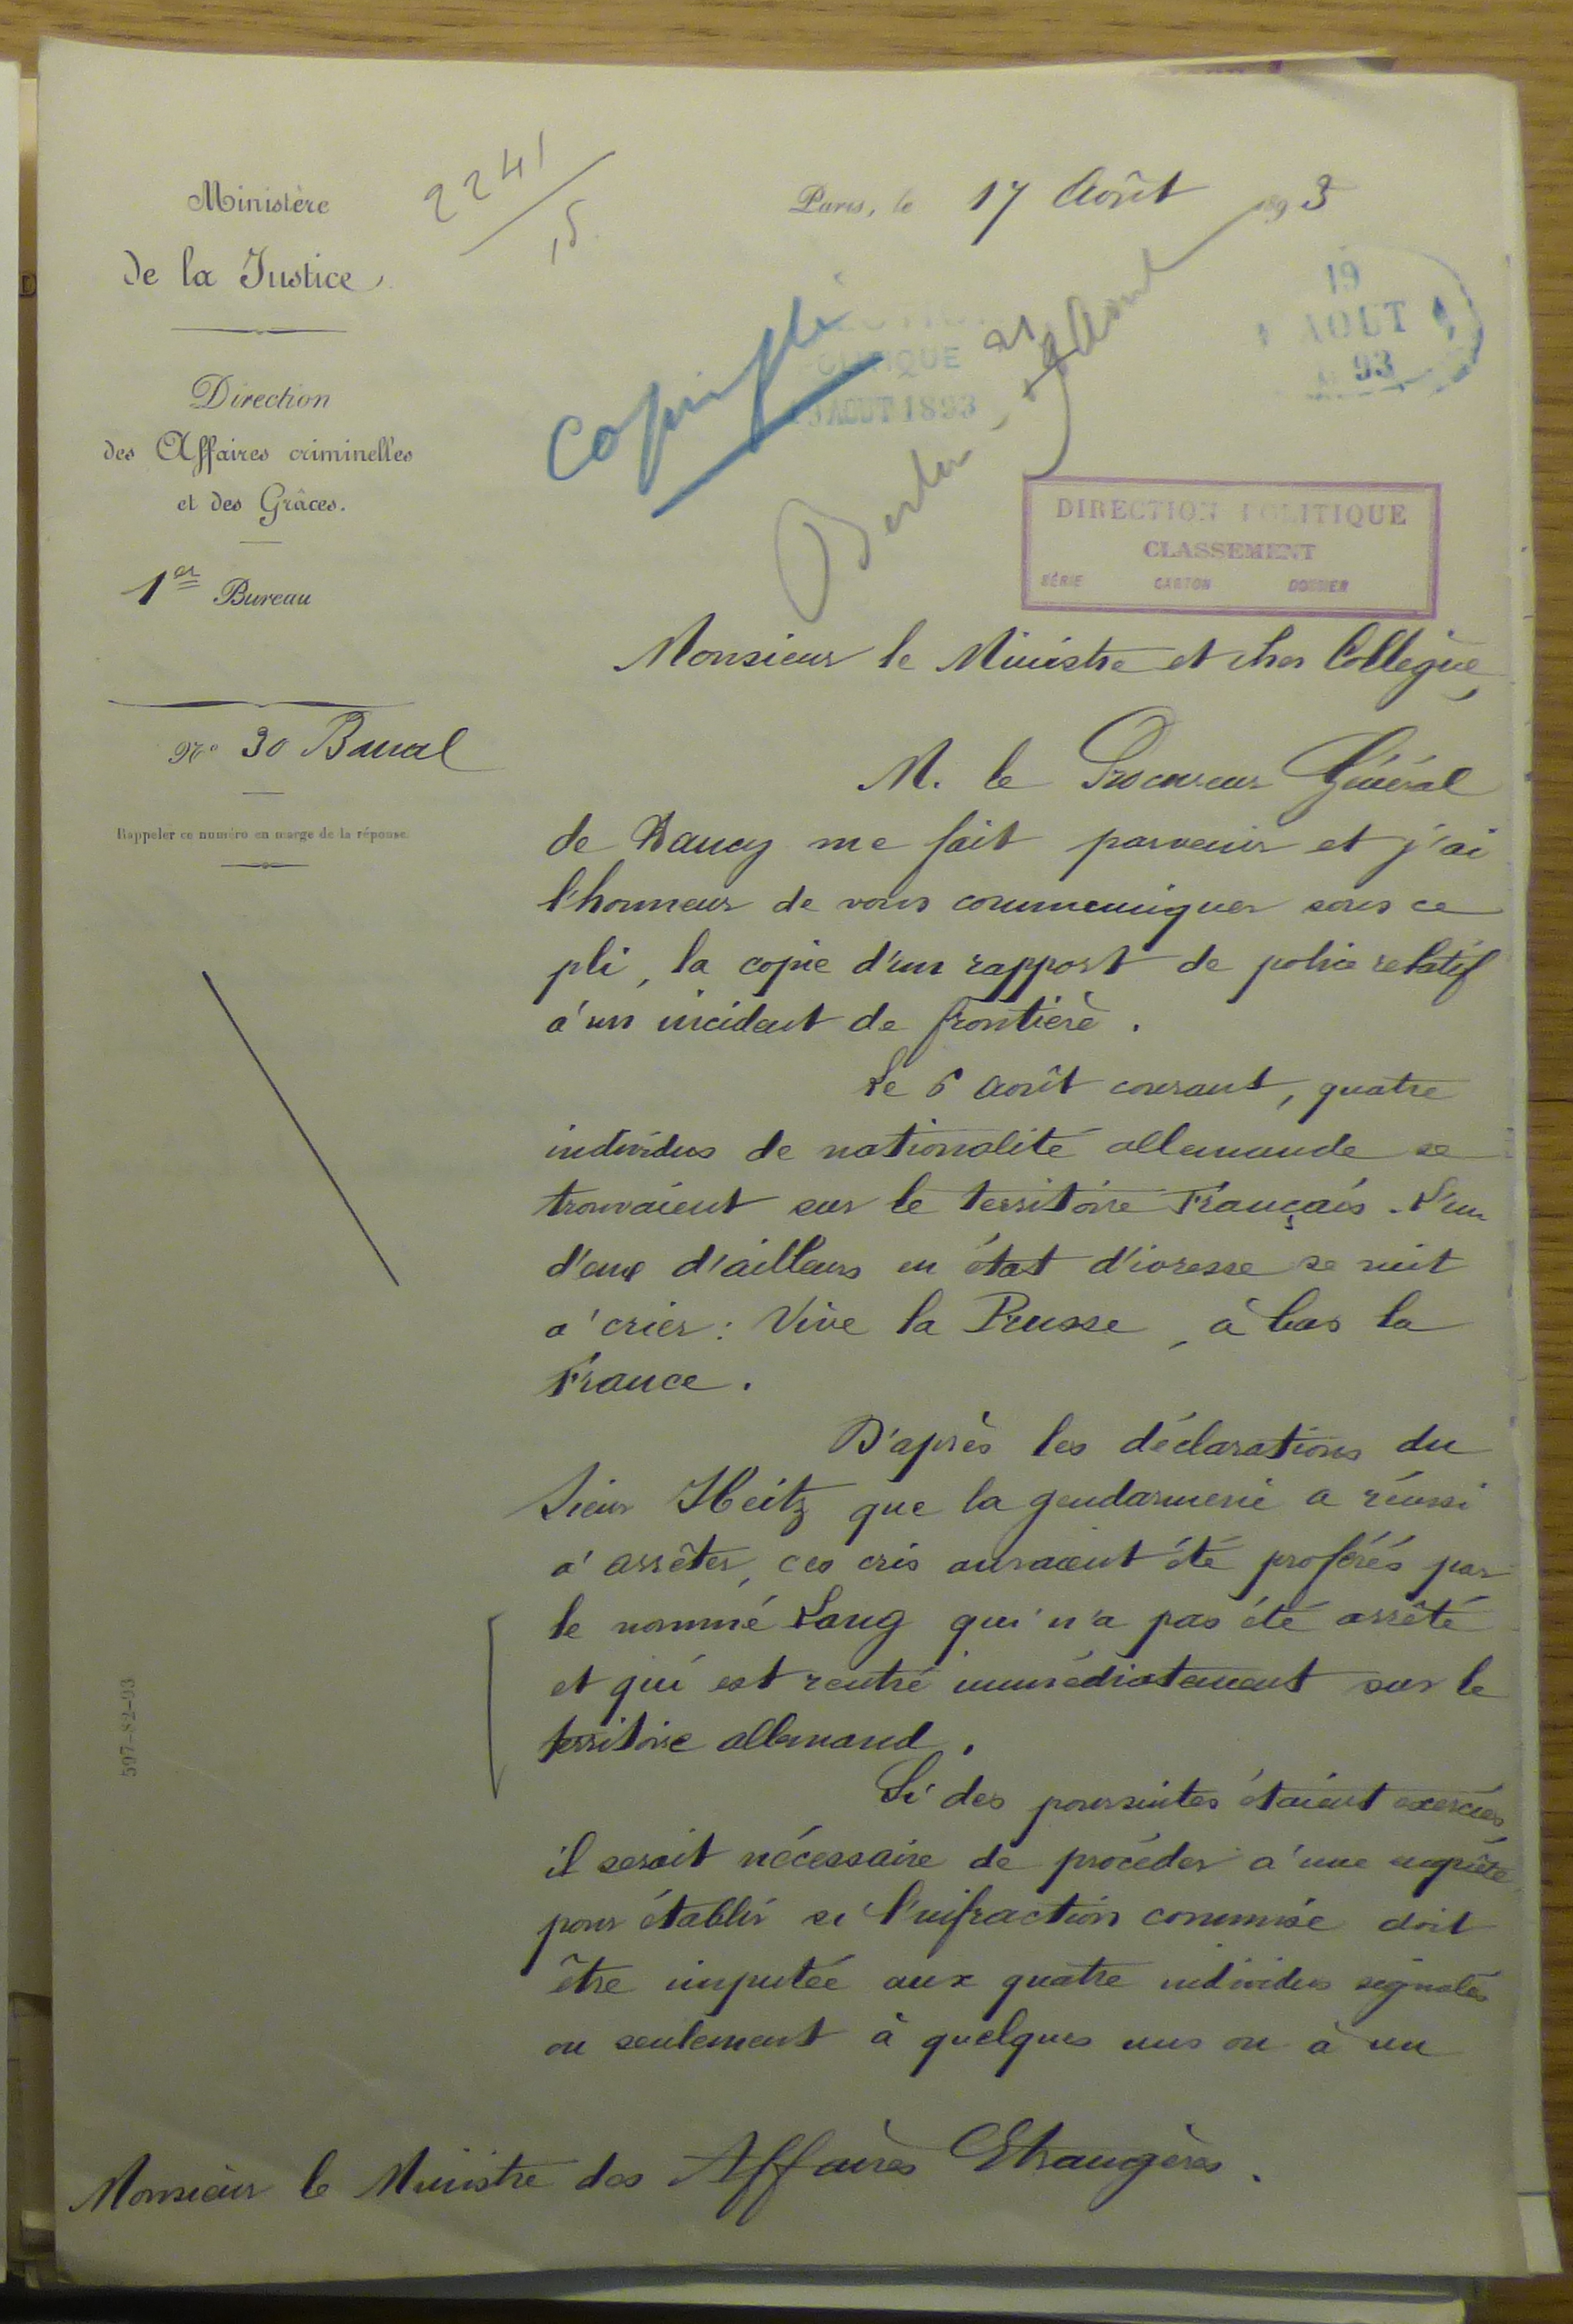 Ministère
de la Justice
Direction
des Affaires criminelles
et des Grâces.
1er Bureau
No 30 Banal
Rappeler ce numéro en marge de la réponse.
597-82-93
2241
15
Paris, le 17 Août 1893
19
AOUT
93
AOUT 1893
Berlin
DIRECTION POLITIQUE
CLASSEMENT
SÉRIE CARTON DOSSIER
Monsieur le Ministre et cher Collègue,
M. le Procureur Général
de Nancy me fait parvenir et j'ai
l'honneur de vous communiquer sous ce
pli, la copie d'un rapport de police relatif
à un incident de frontière.
Le 6 Août courant, quatre
individus de nationalité allemande se
trouvaient sur le territoire Français. L'un
d'eux d'ailleurs en état d'ivresse se mit
à crier: Vive la Prusse, à bas la
France.
D'après les déclarations du
Sieur Heitz que la gendarmerie a réussi
à arrêter, ces cris auraient été proférés par
le nommé Lang qui n'a pas été arrêté
et qui est rentré immédiatement sur le
territoire allemand.
Si des poursuites étaient exercées,
il serait nécessaire de procéder à une enquête
pour établir si l'infraction commise doit
être imputée aux quatre individus signalés
ou seulement à quelques uns ou à un
Monsieur le Ministre des Affaires Etrangères.